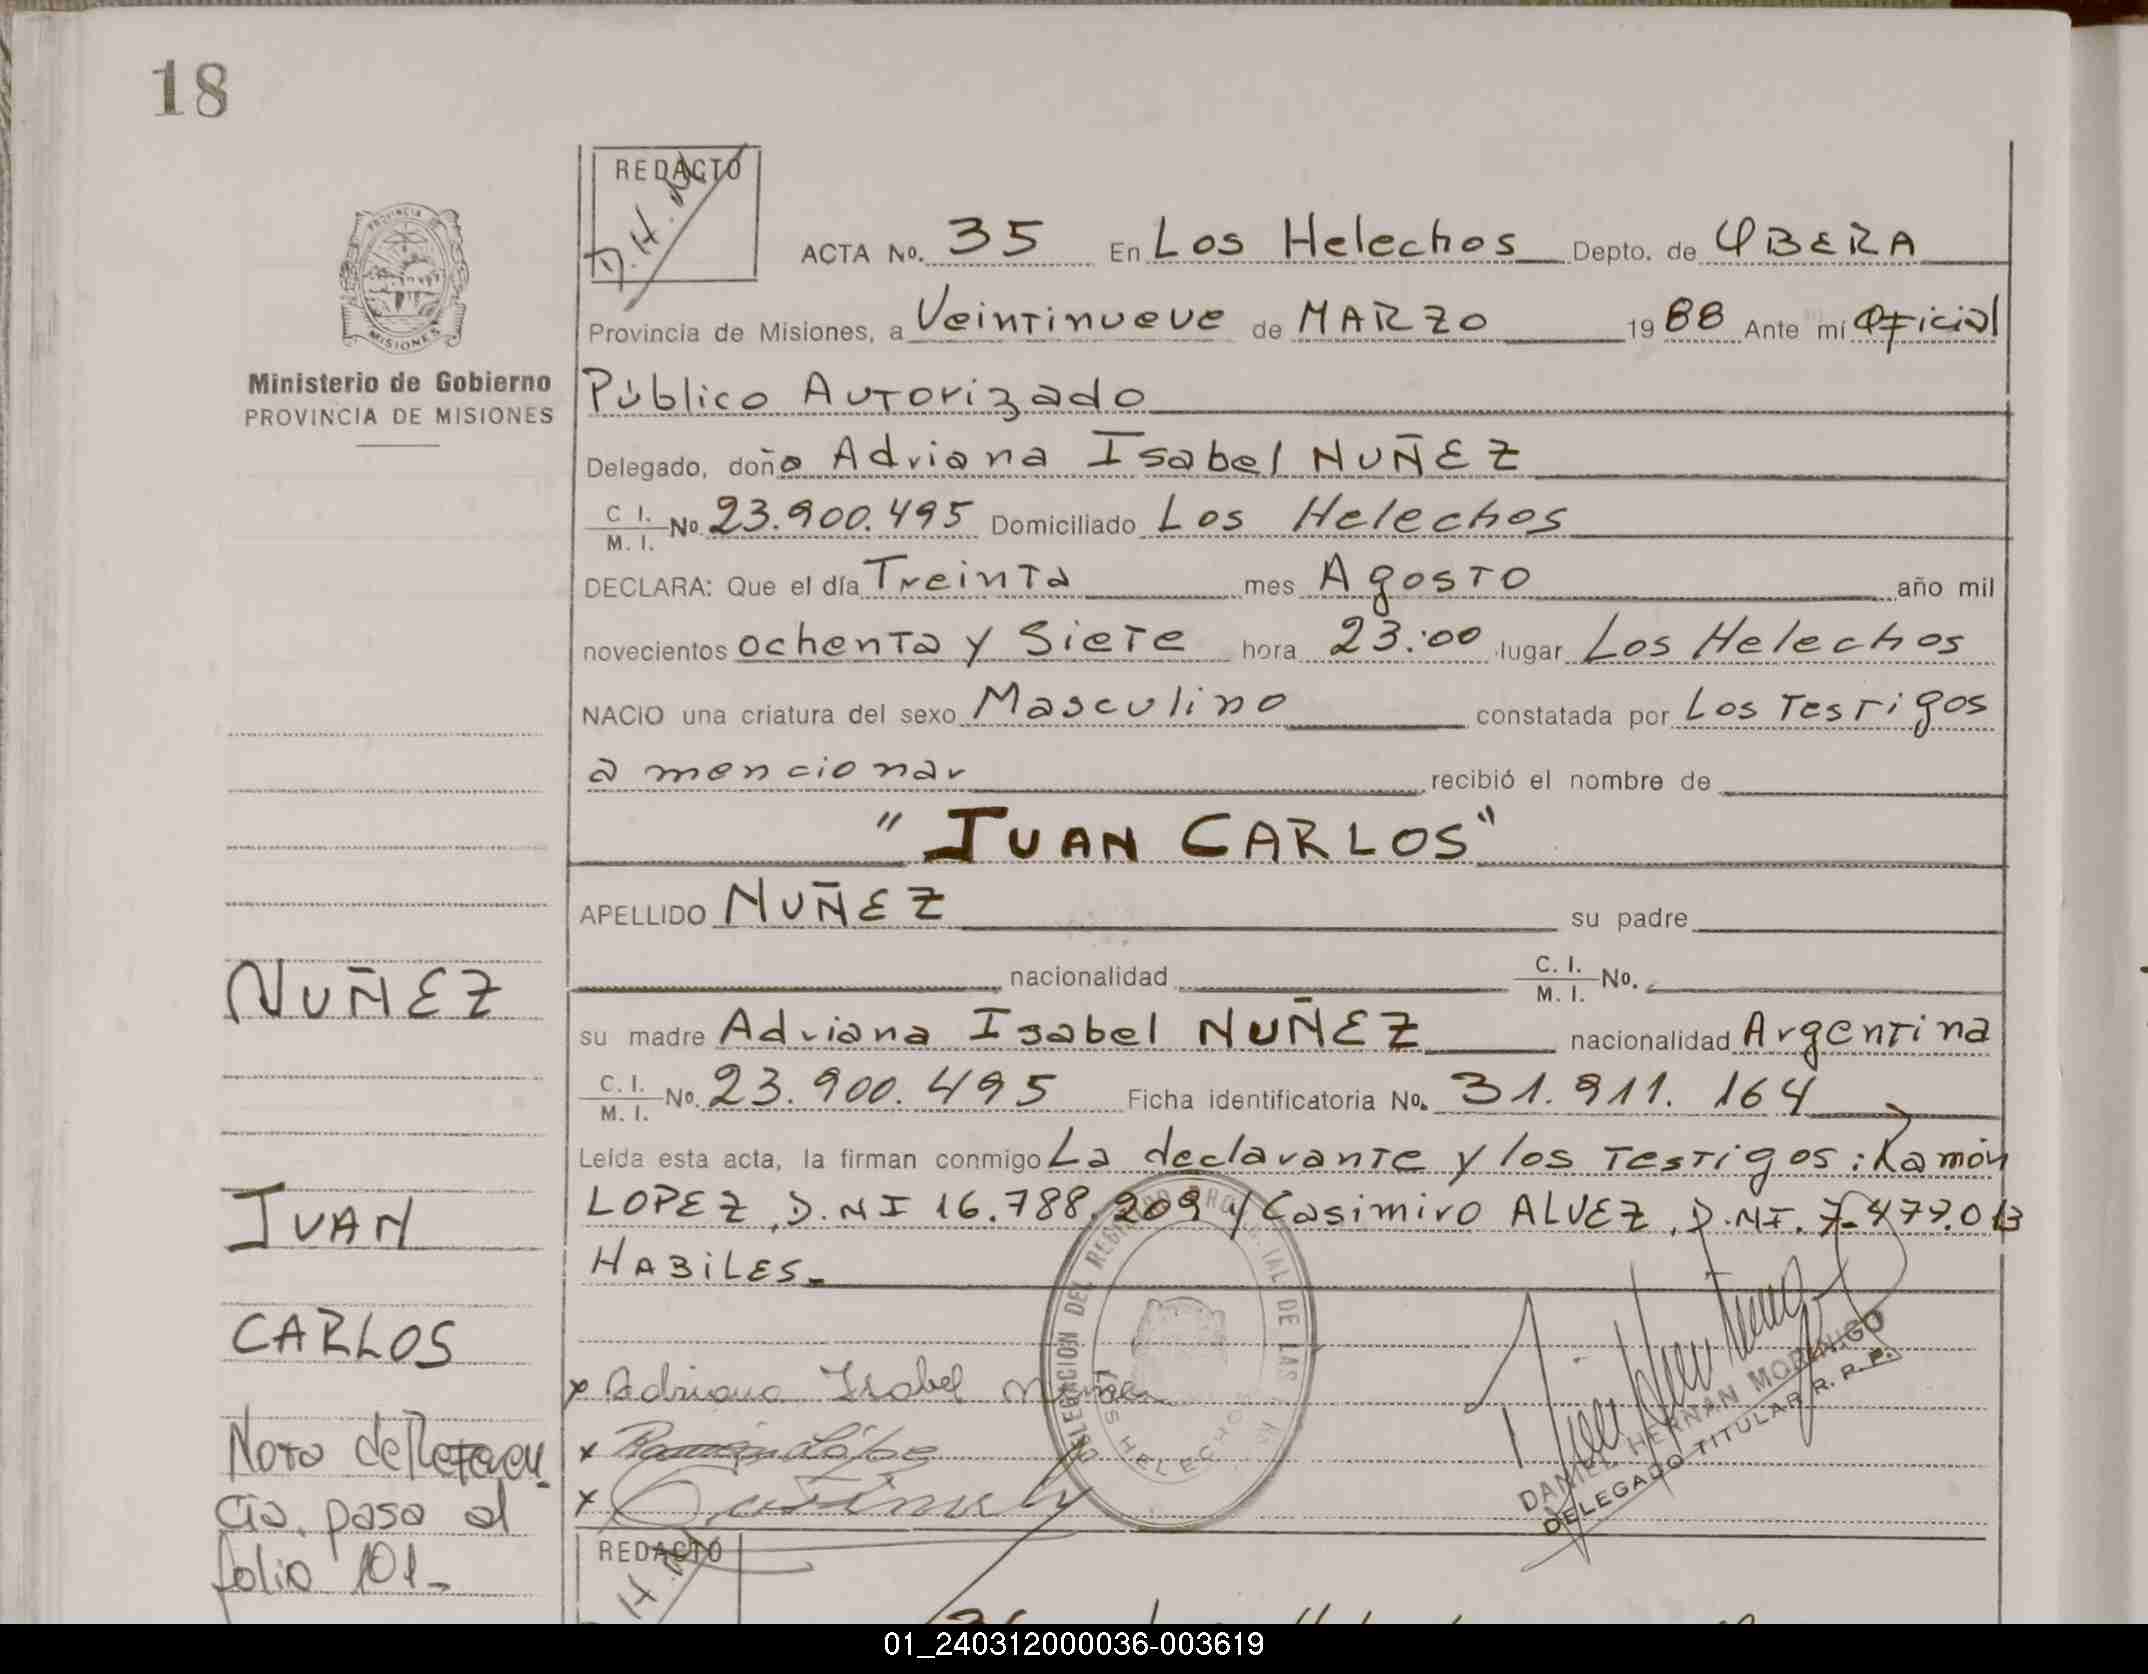 18
REDACTO
D.H.M.
ACTA No. 35 En Los Helechos Depto. de OBERA
Provincia de Misiones, a Veintinueve de MARZO 1988 Ante mí Oficial
Público Autorizado
Delegado, doña Adriana Isabel NUÑEZ
C I. M. I. No. 23.900.495 Domiciliado Los Helechos
DECLARA: Que el día Treinta mes Agosto año mil
novecientos ochenta y Siete hora 23:00 lugar Los Helechos
NACIO una criatura del sexo Masculino constatada por Los Testigos
a mencionar recibió el nombre de
"JUAN CARLOS"
APELLIDO NUÑEZ su padre
nacionalidad C. I. M. I. No.
su madre Adriana Isabel NUÑEZ nacionalidad Argentina
C. I. M. I. No. 23.900.495 Ficha identificatoria No. 31.911.164
Leída esta acta, la firman conmigo La declarante y los Testigos: Ramón
LOPEZ, D.NI 16.788.209 y Casimiro ALVEZ, D.NI. 7.477.013
HABILES.
x Adriana Isabel Nuñez
x Ramón López
x
DELEGACION DEL REGISTRO PROVINCIAL DE LAS
LOS HELECHOS
DANIEL HERNAN MORINIGO
DELEGADO TITULAR R. P. P.
PROVINCIA DE
MISIONES
Ministerio de Gobierno
PROVINCIA DE MISIONES
NUÑEZ
JUAN
CARLOS
Nota de Referen
cia, pasa al
folio 101.-
REDACTO
01_240312000036-003619